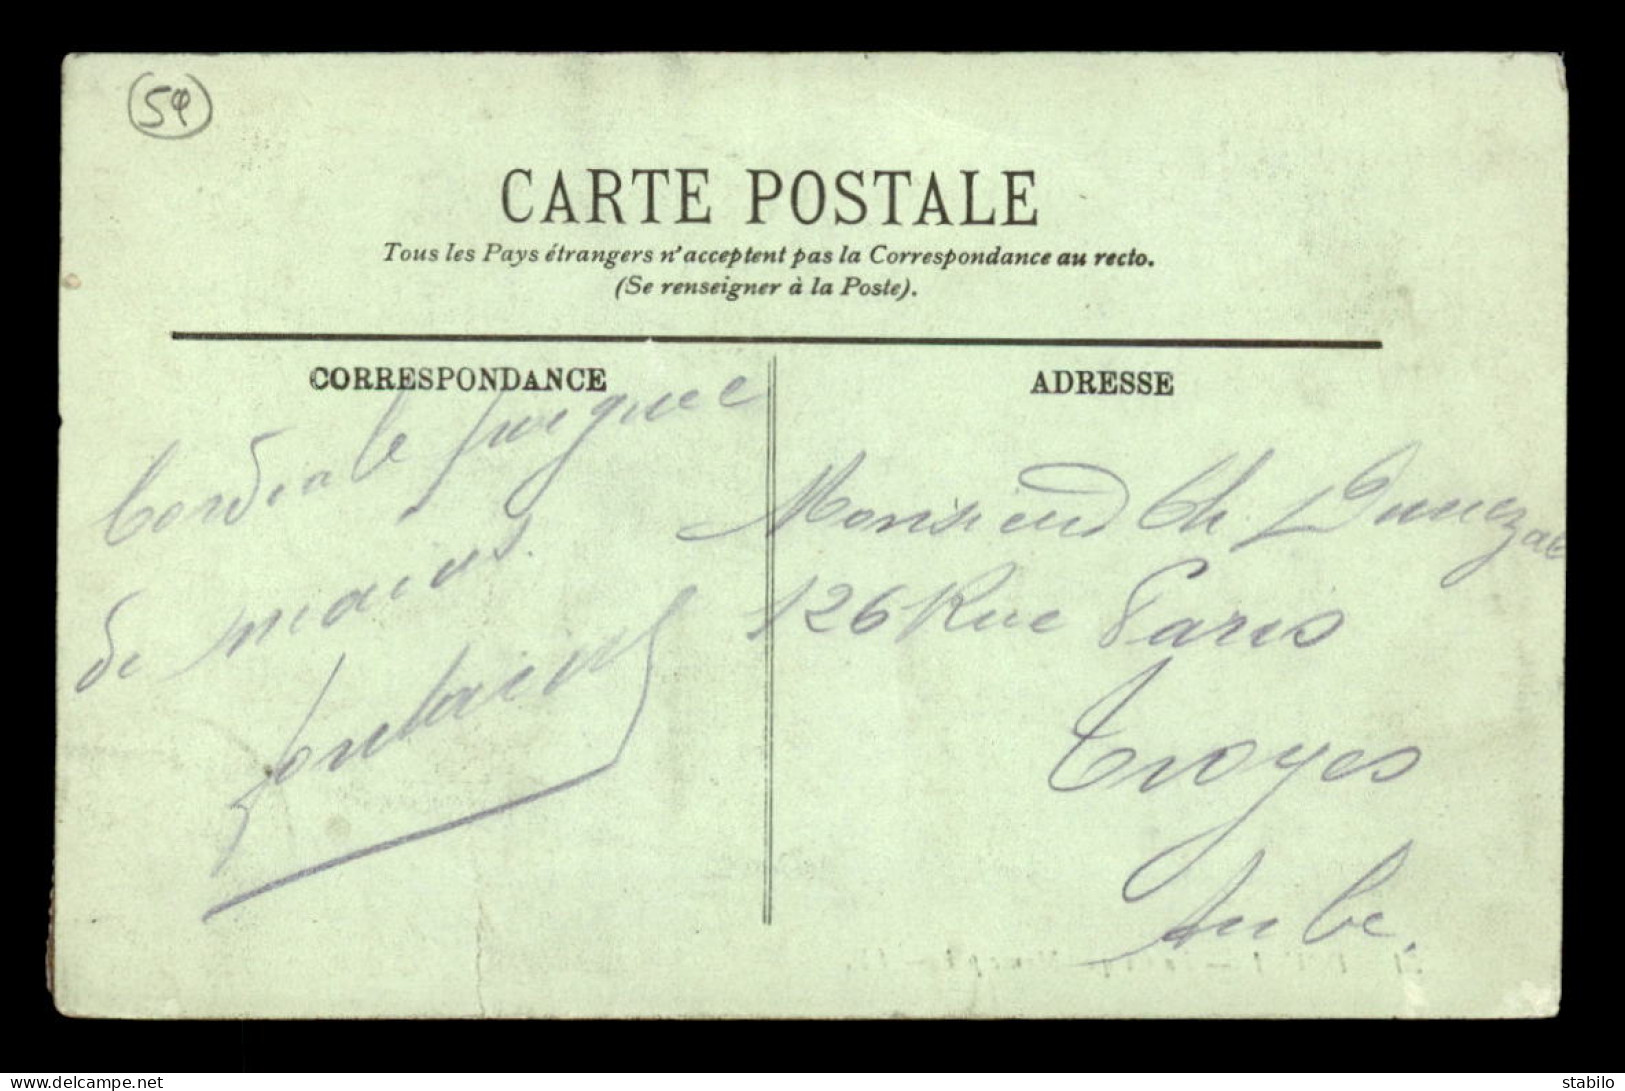 54
CARTE POSTALE
Tous les Pays étrangers n'acceptent pas la Correspondance au recto.
(Se renseigner à la Poste).
CORRESPONDANCE
Cordiale
de mains.
ADRESSE
Monsieur Ch.
126 Rue Paris
Troyes
Aube.
www.delcampe.net
stabilo